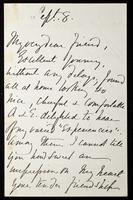 Sept. 8.
My very dear friend,
Excellent journey,
without any delays, found
all at home looking so
nice, cheerful & comfortable
A. & E. delighted to hear
of my varied "Experiences".
Among them I cannot tell
you how sweet an
impression on my heart
your kind friendship